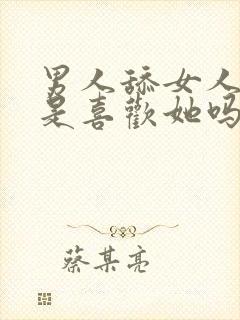 男人舔女人
是喜歡她吗
蔡某亮